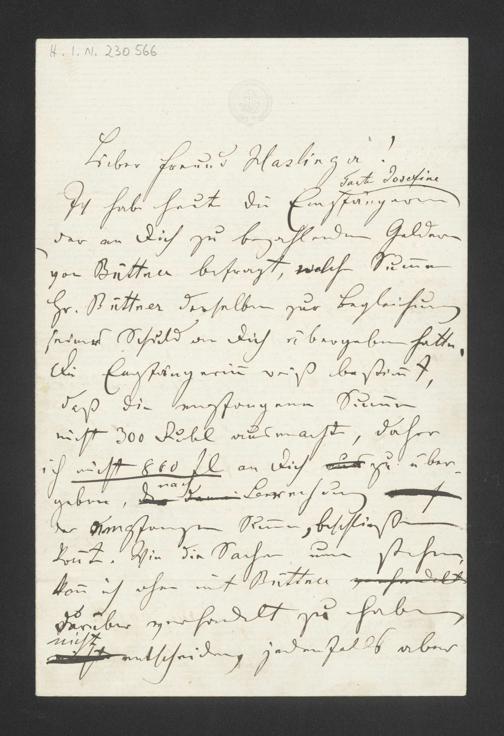 H. I. N. 230 566
Lieber Freund Haslinger!
Tante Josefine
Ich habe heute die Empfängerin
der an Dich zu bezahlenden Gelder
von Büttner befragt, welche Summe
Hr. Büttner derselben zur Begleichung
seiner Schuld an Dich übergeben hatte.
Die Empfängerin weiß bestimmt,
daß die empfangene Summe
nicht 300 Rubl ausmacht, daher
ich nicht 860 fl an Dich zu über-
geben, nach Berechnung
der empfangenen Summe, beschließen
konnte. Wie die Sachen nun stehen,
kann ich ohne mit Büttner verhandelt
darüber verhandelt zu haben
nicht
entscheiden, jedenfalls aber